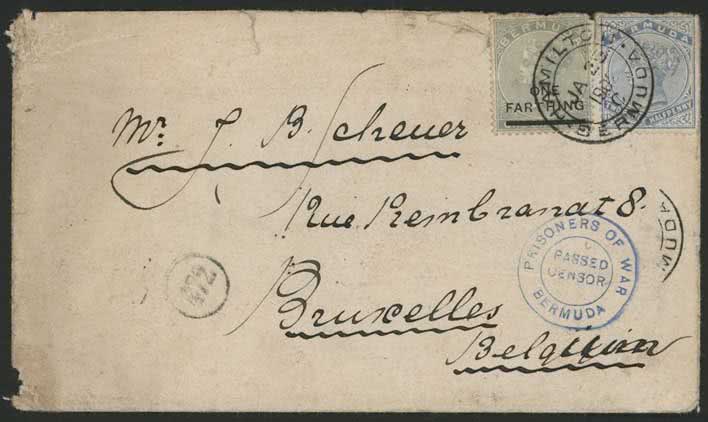 BERMUDA
ONE
FARTHING
BERMUDA
HALFPENNY
HAMILTON
JA
BERMUDA
Mr. J. B. Scheuer
Rue Rembrandt 8.
Bruxelles
Belgium
PRISONERS OF WAR
PASSED
CENSOR
BERMUDA
472
MUDA